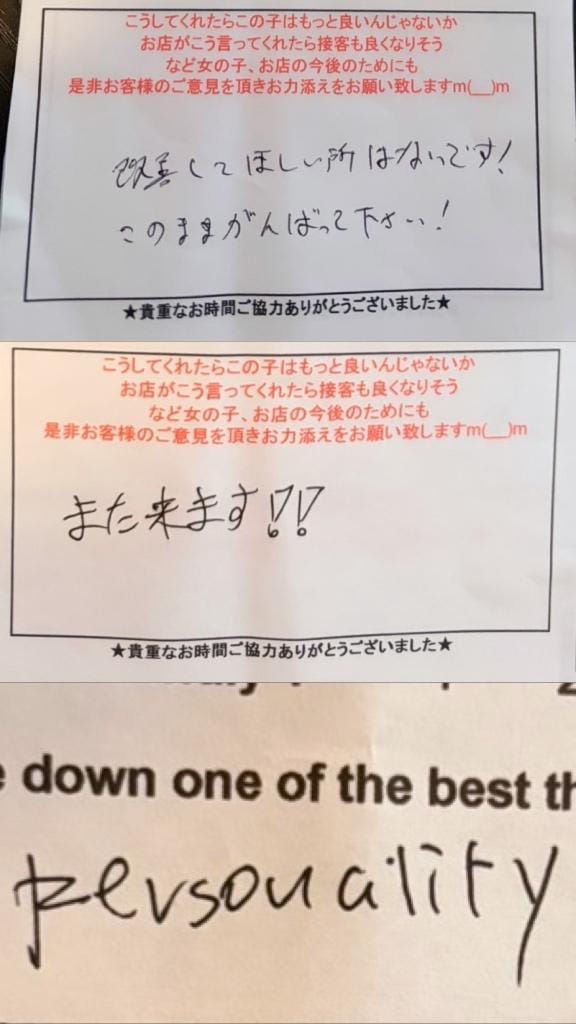 こうしてくれたらこの子はもっと良いんじゃないか
お店がこう言ってくれたら接客も良くなりそう
など女の子、お店の今後のためにも
是非お客様のご意見を頂きお力添えをお願い致しますm(__)m
改善してほしい所はないです!
このままがんばって下さい!
★貴重なお時間ご協力ありがとうございました★
こうしてくれたらこの子はもっと良いんじゃないか
お店がこう言ってくれたら接客も良くなりそう
など女の子、お店の今後のためにも
是非お客様のご意見を頂きお力添えをお願い致しますm(__)m
また来ます!!
★貴重なお時間ご協力ありがとうございました★
down one of the best th
personality